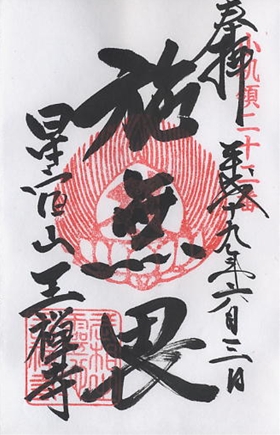 奉拝
小机領二十三番
平成十九年六月三日
施無畏
星宿山 王禅寺